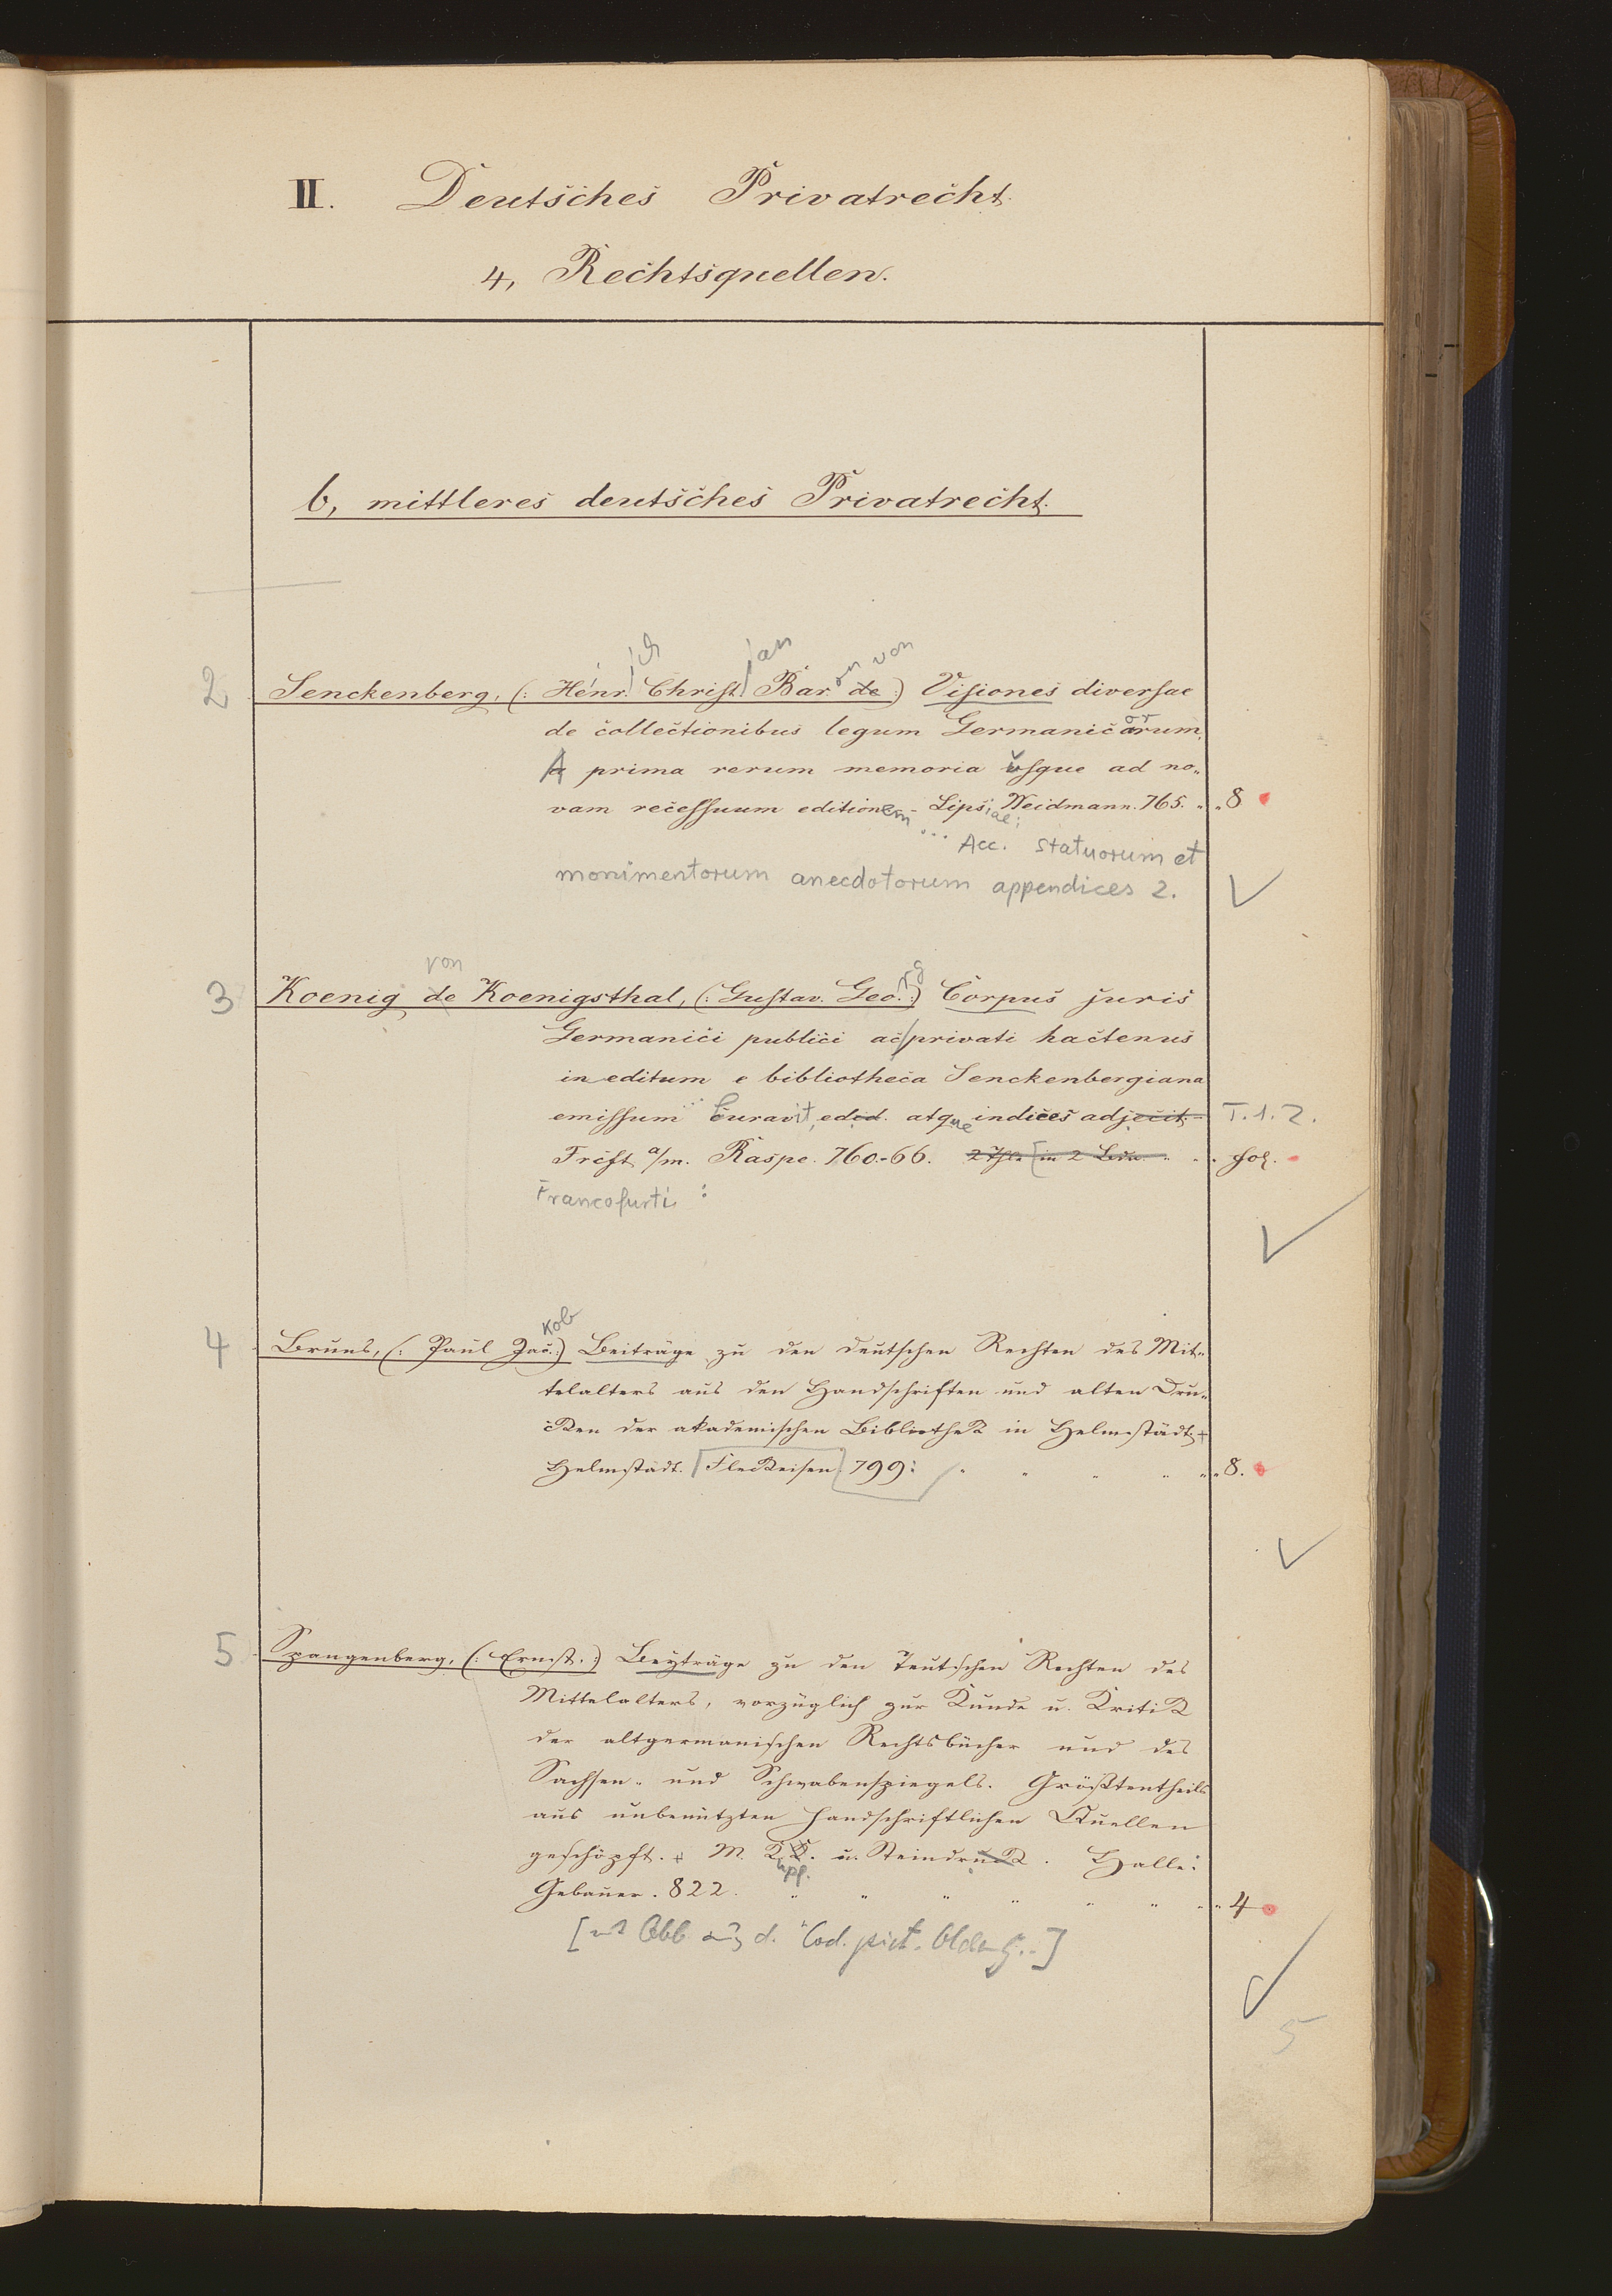 II. Deutsches Privatrecht.
4, Rechtsquellen.
b, mittleres deutsches Privatrecht.
ich ian on von
2 Senckenberg, (: Henr. Christ. Bar. de :) Visiones diversae
de collectionibus legum Germanicarum. or
A prima rerum memoria usque ad no„
vam recessuum editionem – Lipsiae; Weidmann. 765. „ „ 8
... Acc. statuorum et
monimentorum anecdotorum appendices 2.
von rg
3 Koenig de Koenigsthal, (: Gustav. Geo. :) Corpus juris
Germanici publici ac privati hactenus
ineditum e bibliotheca Senckenbergiana
emissum ... Curavit, edid. atque indices adjecit. – T. 1. 2.
Frcft a/m. Raspe. 760.-66. 2 Thle [in 2 Bdn. „ „ fol.
Francofurti :
kob
4 Bruns, (: Paul Jac. :) Beiträge zu den deutschen Rechten des Mit„
telalters aus den Handschriften und alten Dru„
cken der akademischen Bibliothek in Helmstädt.
Helmstädt. [Fleckeisen] 799: „ „ „ „ „ 8.
5 Spangenberg, (: Ernst. :) Beyträge zu den Teutschen Rechten des
Mittelalters, vorzüglich zur Kunde u. Kritik
der altgermanischen Rechtsbücher und des
Sachsen- und Schwabenspiegels. Größtentheils
aus unbenützten handschriftlichen Quellen
geschöpft. M. KK. u. Steindruck. Halle:
upf.
Gebauer. 822. „ „ „ „ „ „ „ 4
[mit Abb. aus d. "Cod. pict. Oldenb."]
5